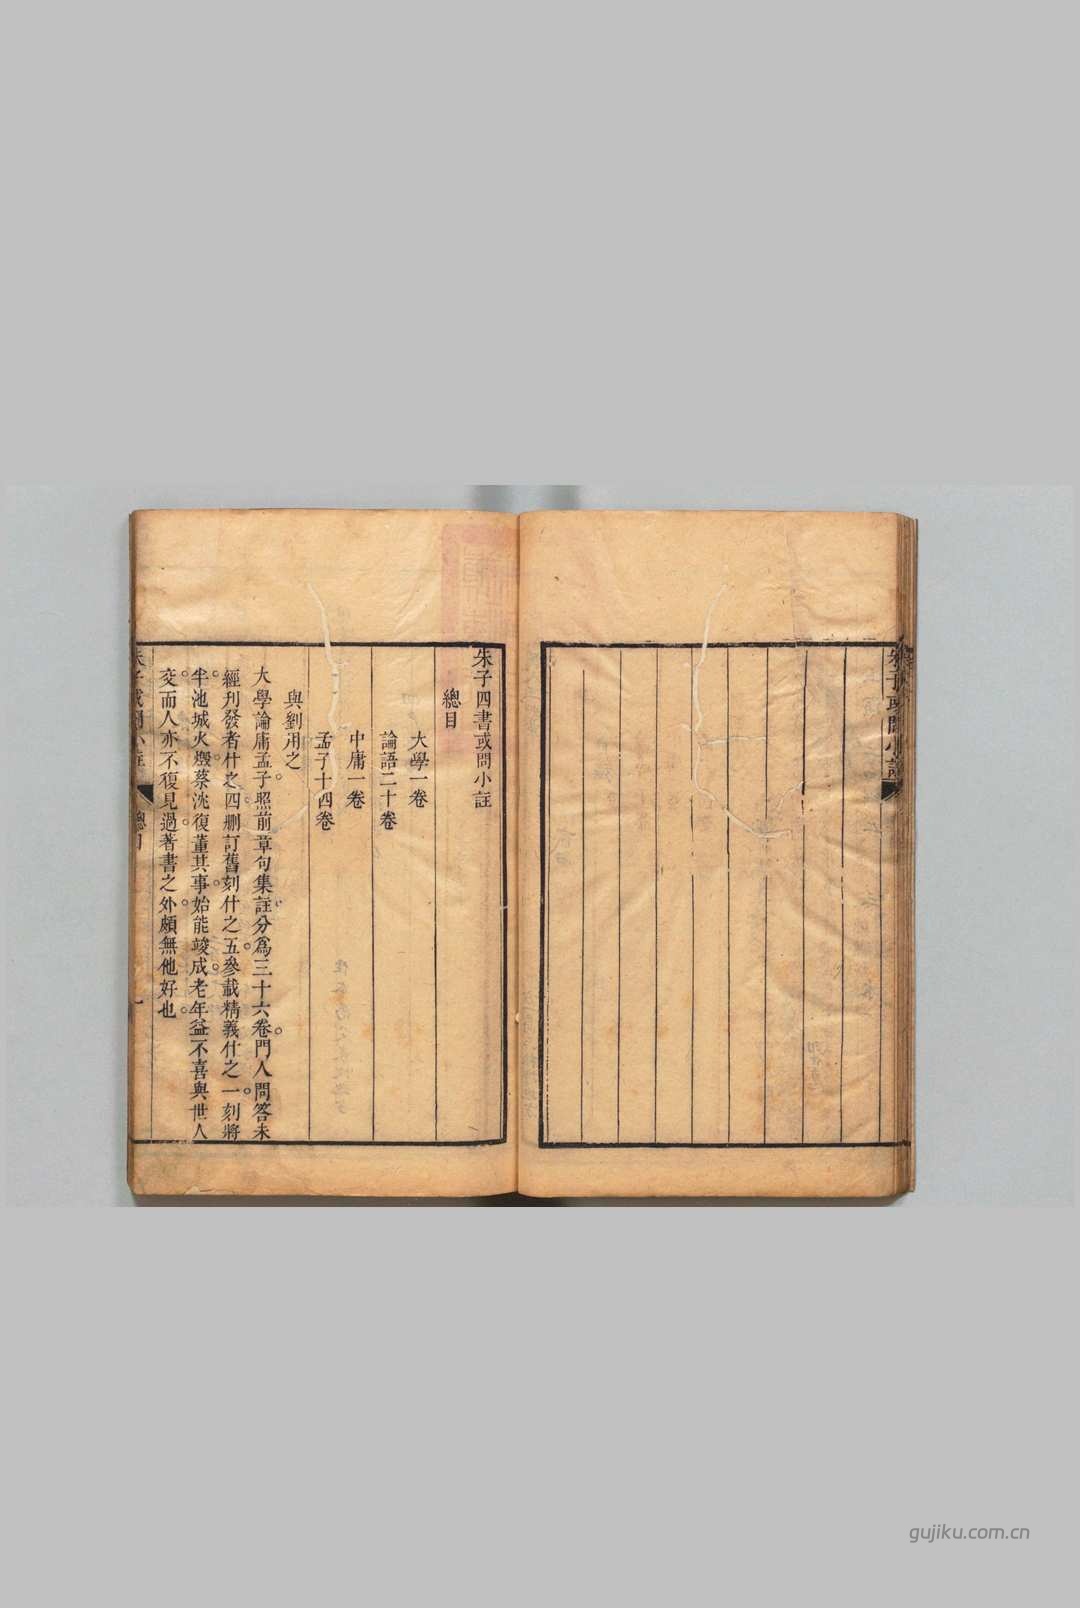 朱子四書或問小註
總目
大學一卷
論語二十卷
中庸一卷
孟子十四卷
與劉用之
大學論庸孟子。照前章句集註。分為三十六卷。門人問答未
經刊發者什之四。刪訂舊刻什之五。參載精義什之一。刻將
半。池城火燬。蔡沈復董其事。始能竣成。老年益不喜與世人
交。而人亦不復見過。著書之外。頗無他好也。
朱子或問小註
總目
一
朱子或問小註
gujiku.com.cn